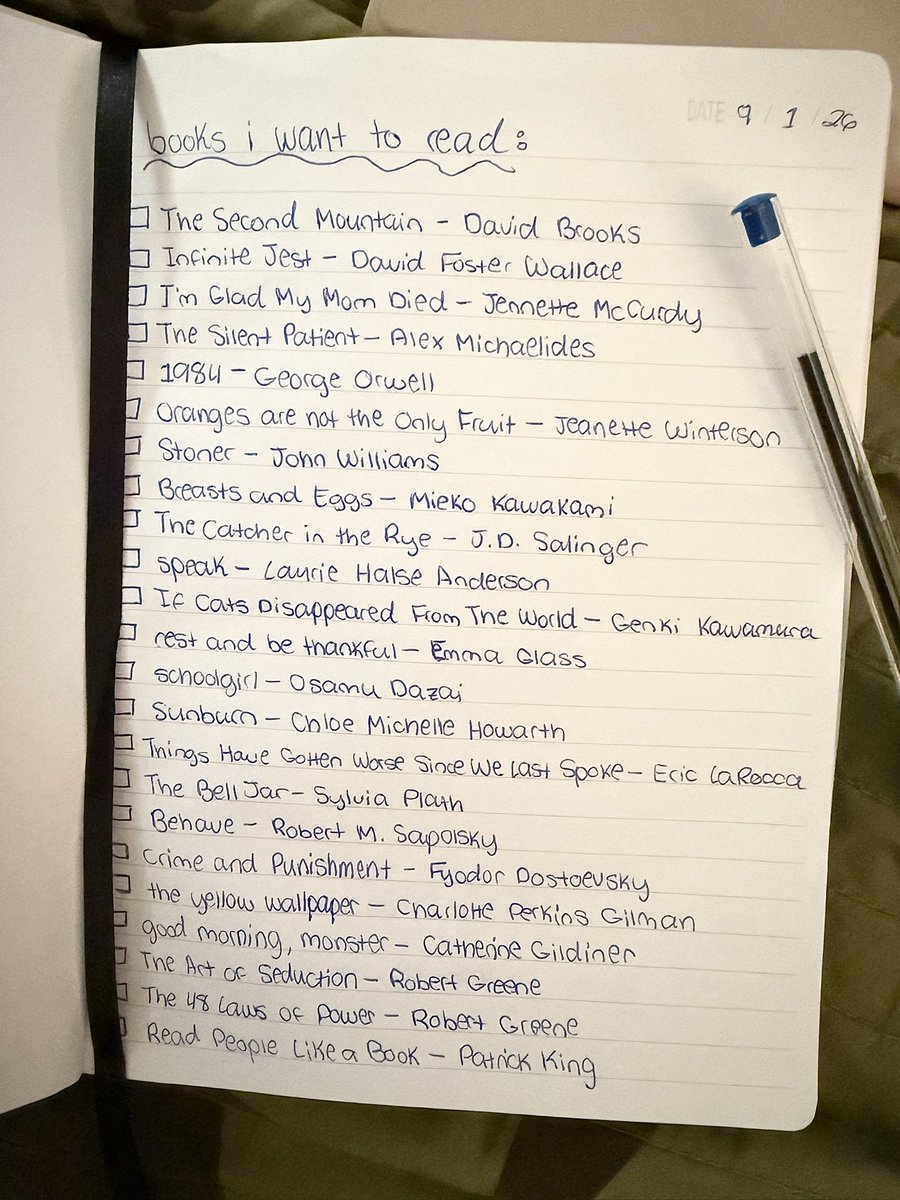 DATE 9 / 1 / 26
books i want to read:
The Second Mountain - David Brooks
Infinite Jest - David Foster Wallace
I'm Glad My Mom Died - Jennette McCurdy
The Silent Patient - Alex Michaelides
1984 - George Orwell
Oranges are not the Only Fruit - Jeanette Winterson
Stoner - John Williams
Breasts and Eggs - Mieko Kawakami
The Catcher in the Rye - J.D. Salinger
speak - Laurie Halse Anderson
If Cats Disappeared From The World - Genki Kawamura
rest and be thankful - Emma Glass
schoolgirl - Osamu Dazai
Sunburn - Chloe Michelle Howarth
Things Have Gotten Worse Since We Last Spoke - Eric LaRocca
The Bell Jar - Sylvia Plath
Behave - Robert M. Sapolsky
Crime and Punishment - Fyodor Dostoevsky
the yellow wallpaper - Charlotte Perkins Gilman
good morning, monster - Catherine Gildiner
The Art of Seduction - Robert Greene
The 48 Laws of Power - Robert Greene
Read People Like a Book - Patrick King